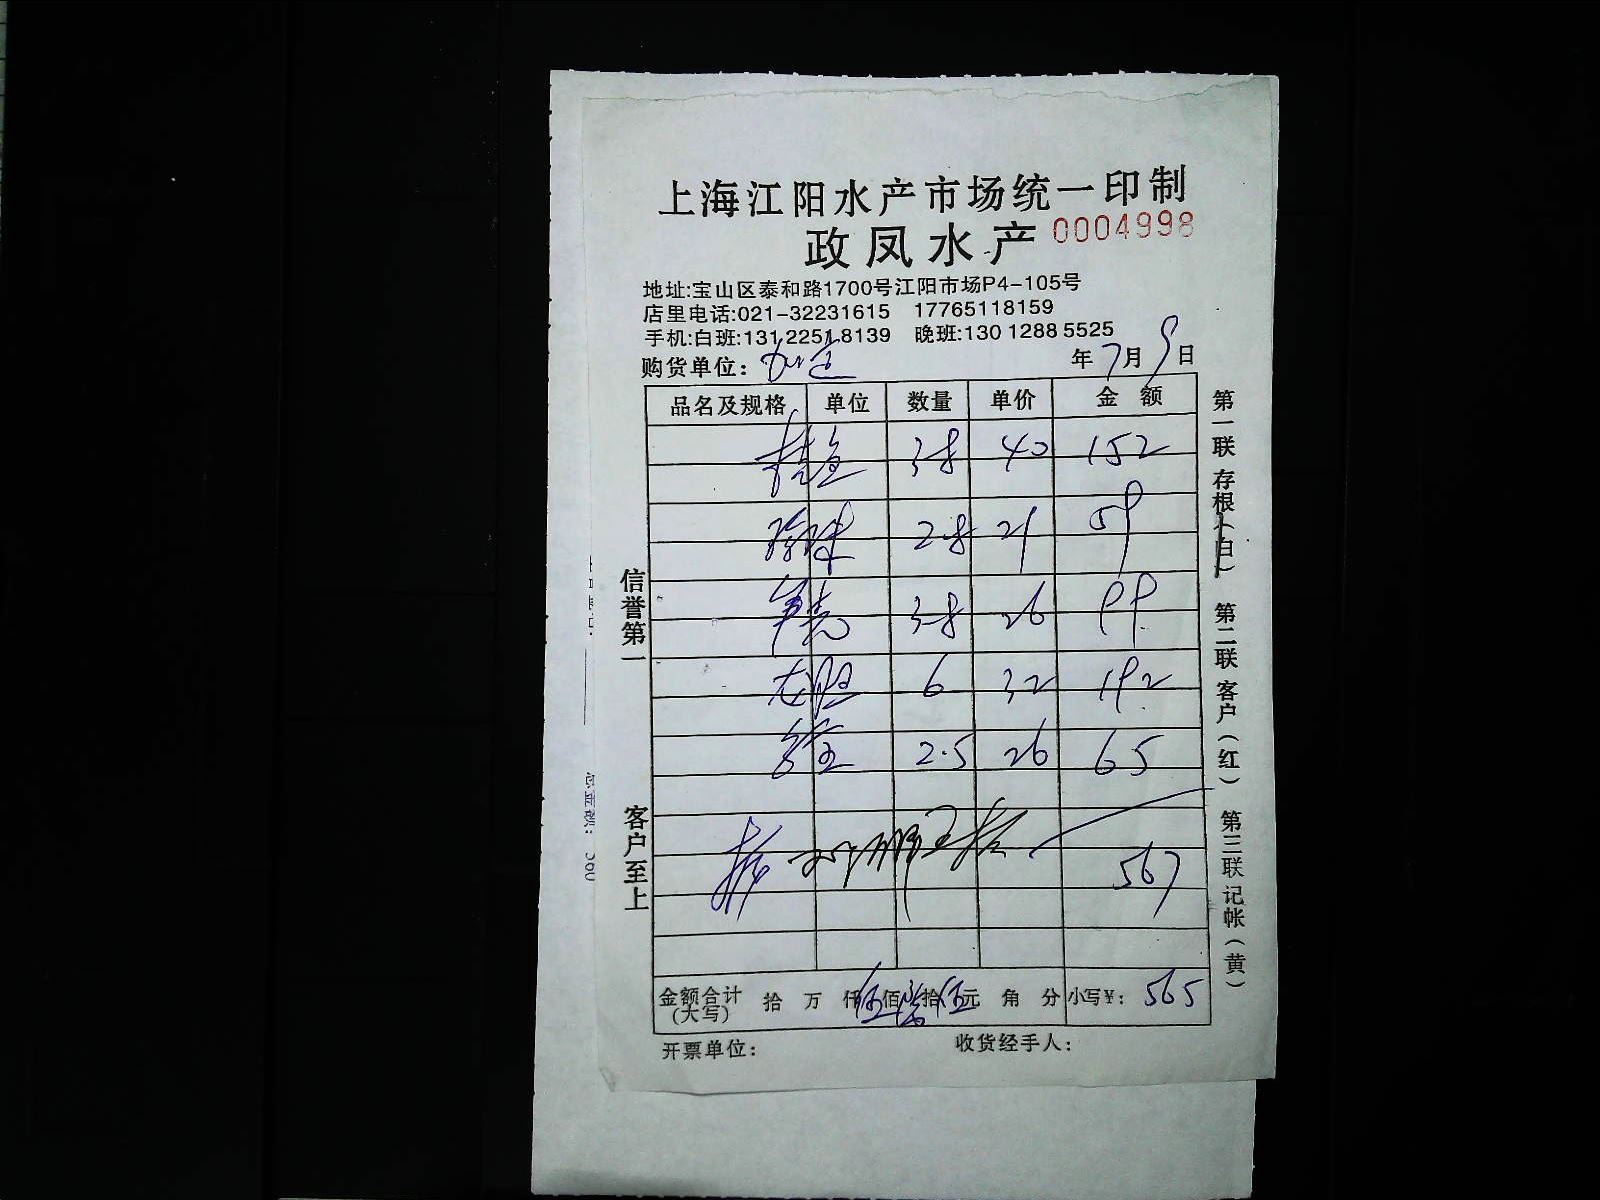 上海江阳水产市场统一印制
政凤水产 0004998
地址:宝山区泰和路1700号江阳市场P4-105号
店里电话:021-32231615 17765118159
手机:白班:131 2251 8139 晚班:130 1288 5525
购货单位: 年 7月 9日
品名及规格 单位 数量 单价 金 额
桂鱼 38 40 152
珍珠 2.8 21 59
38 26 99
龙胆 6 32 192
2.5 26 65
567
金额合计(大写) 拾 万 仟 伍佰 拾伍元 角 分 小写¥: 565
开票单位: 收货经手人:
信誉第一
客户至上
第一联 存根(白) 第二联 客户(红) 第三联 记帐(黄)